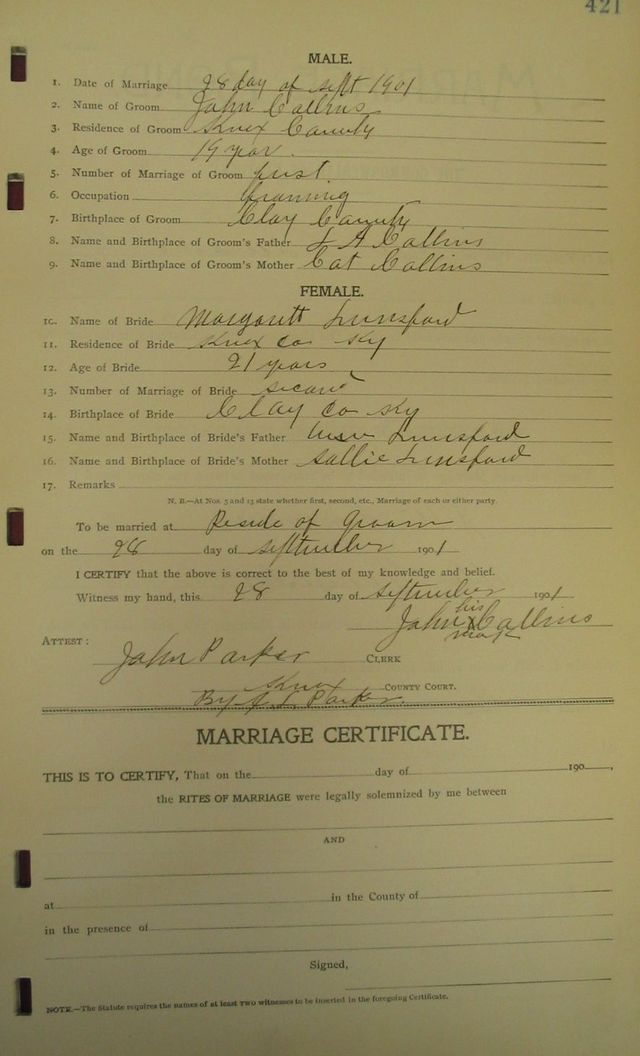 421
MALE.
1. Date of Marriage 28 day of Sept 1901
2. Name of Groom John Collins
3. Residence of Groom Knox County
4. Age of Groom 19 year
5. Number of Marriage of Groom first
6. Occupation
7. Birthplace of Groom Clay County
8. Name and Birthplace of Groom's Father Collins
9. Name and Birthplace of Groom's Mother Cat Collins
FEMALE.
10. Name of Bride Margarett Lunsford
11. Residence of Bride Knox Co Ky
12. Age of Bride 21 years
13. Number of Marriage of Bride second
14. Birthplace of Bride Clay Co Ky
15. Name and Birthplace of Bride's Father Lunsford
16. Name and Birthplace of Bride's Mother Sallie Lunsford
17. Remarks
N. B.—At Nos. 5 and 13 state whether first, second, etc., Marriage of each or either party.
To be married at Reside of Groom
on the 28 day of September 1901
I CERTIFY that the above is correct to the best of my knowledge and belief.
Witness my hand, this 28 day of September 1901
his
John x Collins
mark
ATTEST:
John Parker CLERK
Knox COUNTY COURT.
By Parker
MARRIAGE CERTIFICATE.
THIS IS TO CERTIFY, That on the day of 190 ,
the RITES OF MARRIAGE were legally solemnized by me between
AND
at in the County of
in the presence of
Signed,
NOTE.—The Statute requires the names of at least TWO witnesses to be inserted in the foregoing Certificate.